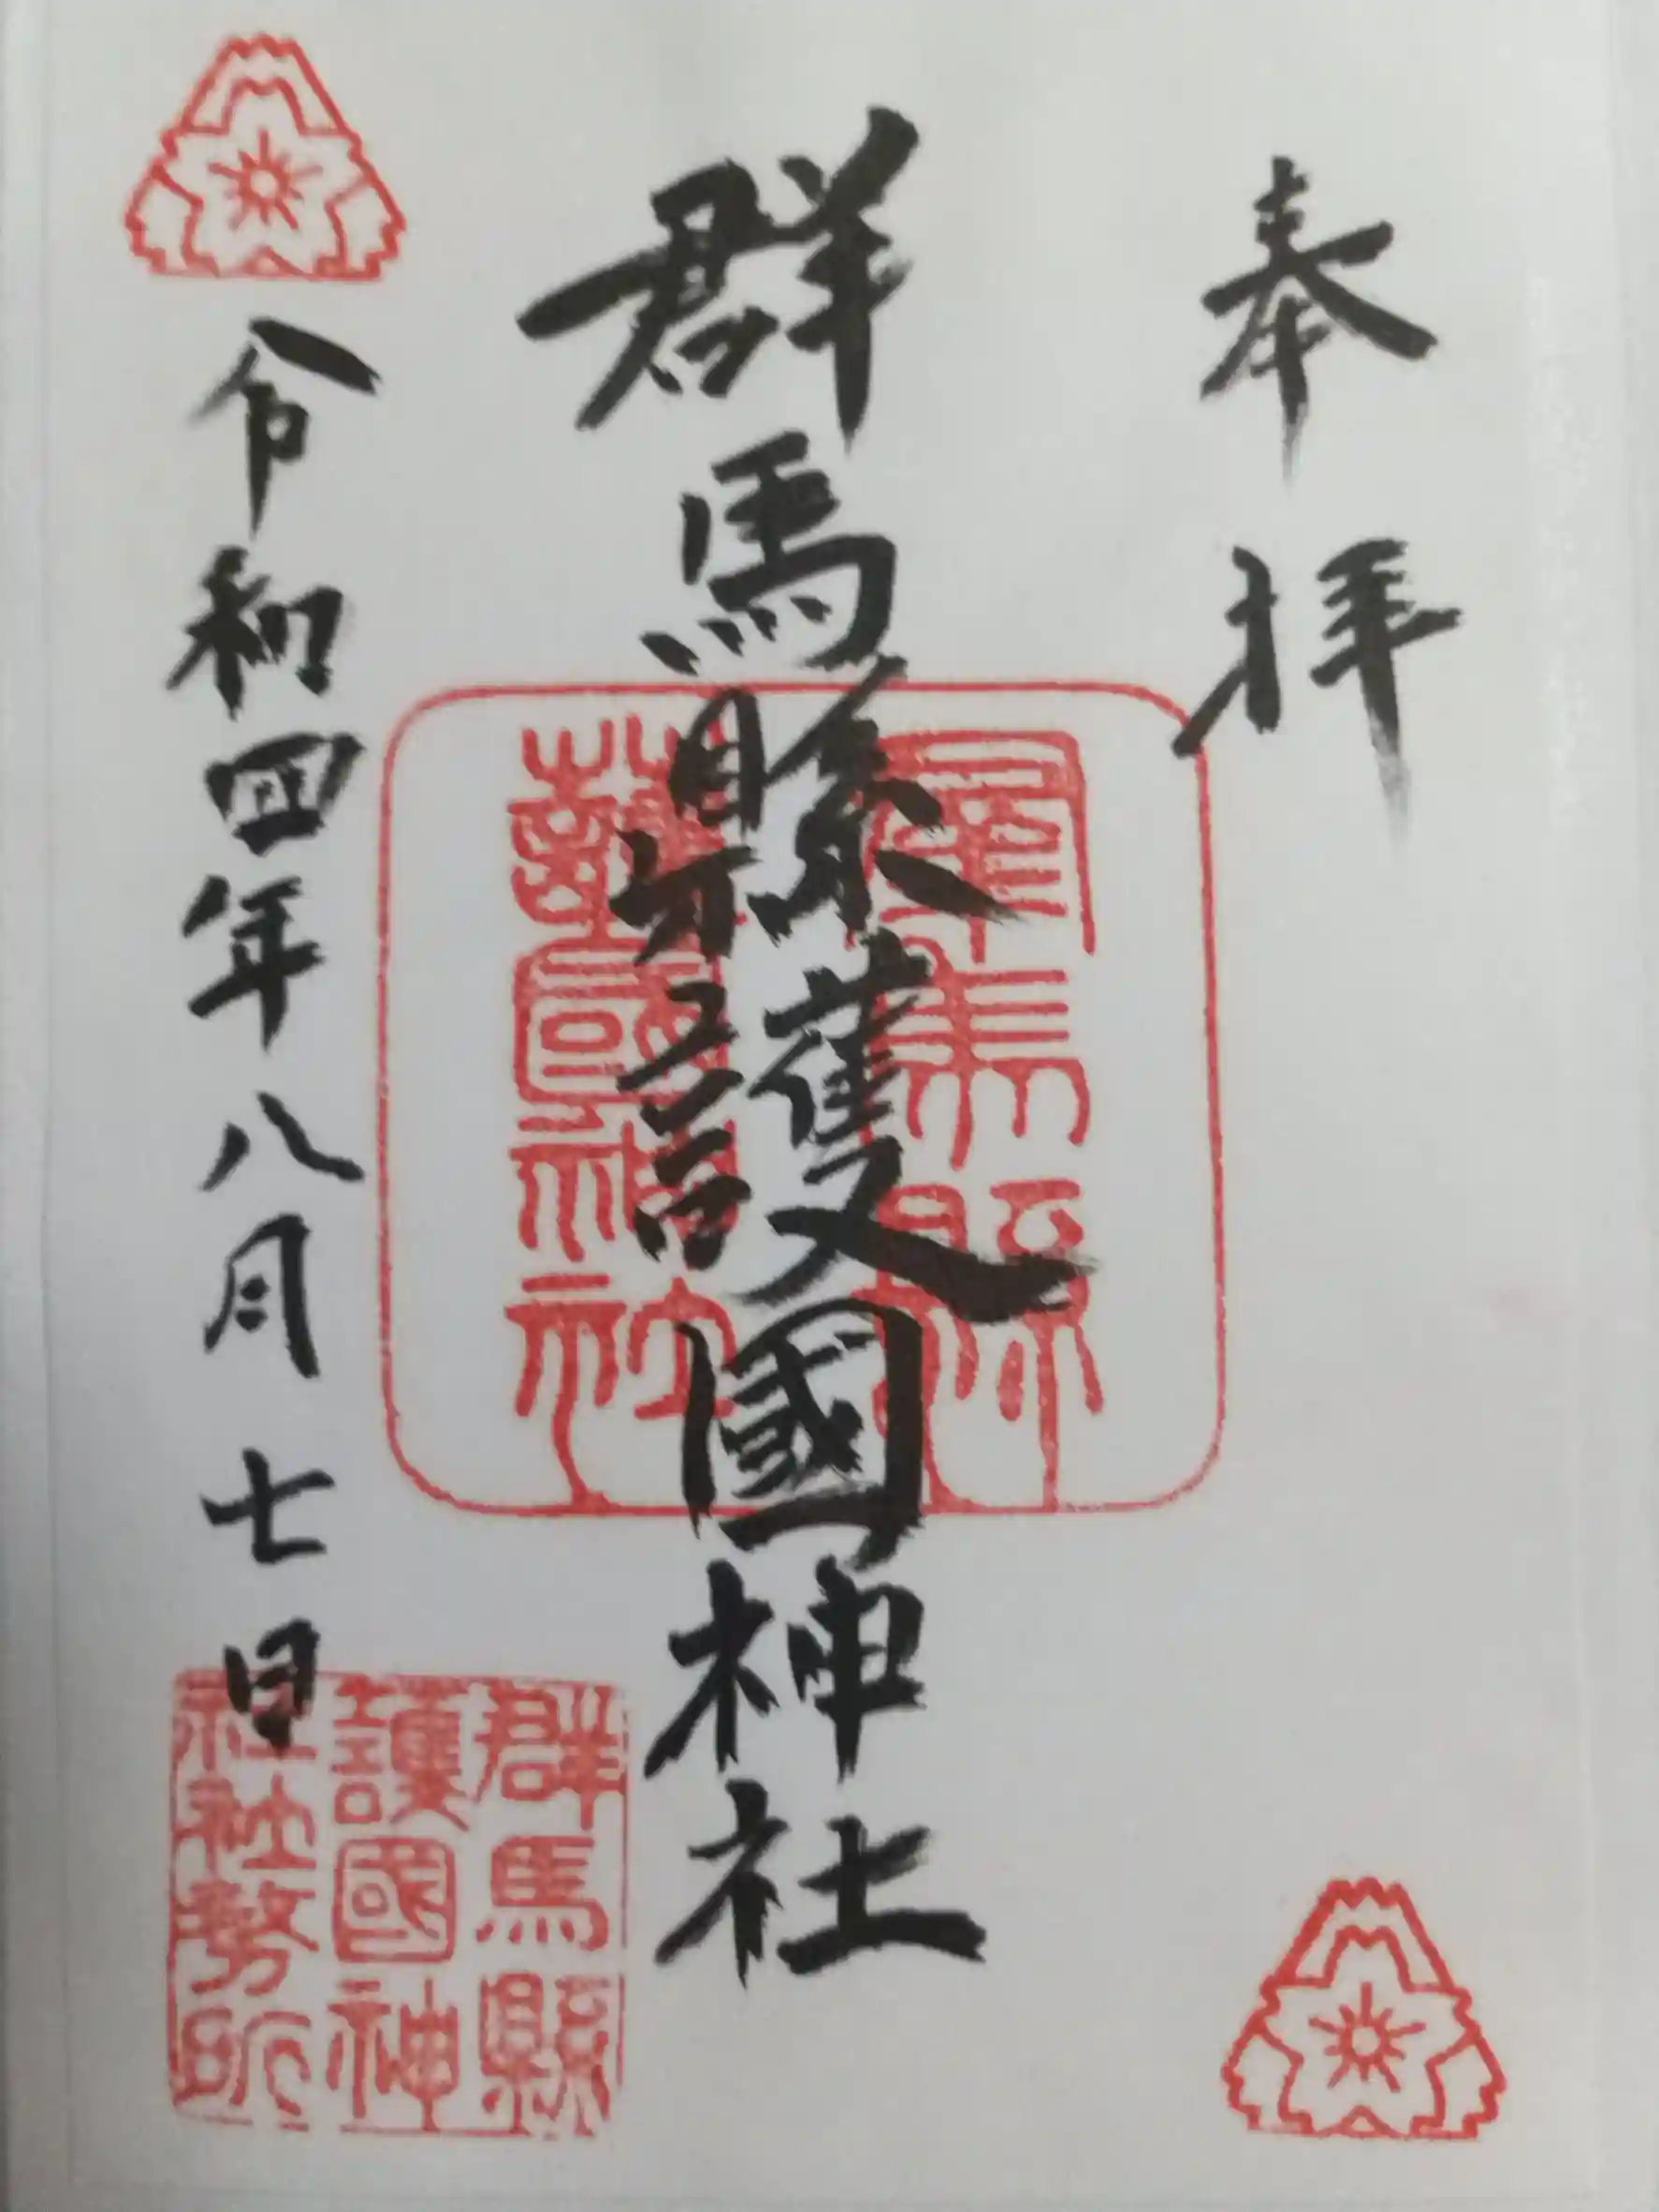 奉拝
群馬縣護國神社
令和四年八月七日
群馬縣
護國神社
群馬縣
護國神
社社務所